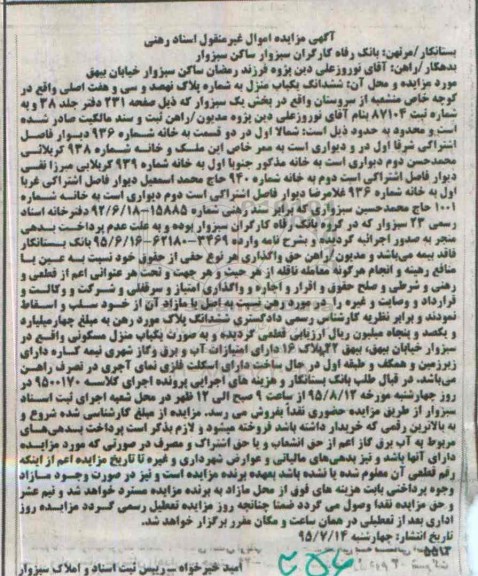 آگهی مزایده اموال غیرمنقول اسناد رهنی
بستانکار/مرتهن: بانک رفاه کارگران سبزوار ساکن سبزوار
بدهکار/راهن: آقای نوروزعلی دین پژوه فرزند رمضان ساکن سبزوار خیابان بیهق
مورد مزایده و محل آن: ششدانگ یکباب منزل به شماره پلاک نهصد و سی و هفت اصلی واقع در
کوچه خاص منشعبه از سروستان واقع در بخش یک سبزوار که ذیل صفحه ۲۳۱ دفتر جلد ۳۸ و به
شماره ثبت ۸۷۱۰۴ بنام آقای نوروزعلی دین پژوه مدیون/راهن ثبت و سند مالکیت صادر شده
است و محدود به حدود ذیل است: شمالا اول در دو قسمت به خانه شماره ۹۳۶ دیوار فاصل
اشتراکی شرقا اول در و دیواری است به ممر خاص این ملک و خانه شماره ۹۳۸ کربلائی
محمدحسن دوم دیواری است به خانه مذکور جنوبا اول به خانه شماره ۹۳۹ کربلایی میرزا تقی
دیوار فاصل اشتراکی است دوم به خانه شماره ۹۴۰ حاج محمد اسمعیل دیوار فاصل اشتراکی غربا
اول به خانه شماره ۹۳۶ غلامرضا دیوار فاصل اشتراکی است دوم دیواری است به خانه شماره
۱۰۰۱ حاج محمدحسین سبزواری که برابر سند رهنی شماره ۱۵۸۸۵-۹۲/۶/۱۸ دفترخانه اسناد
رسمی ۲۳ سبزوار که در گروه بانک رفاه کارگران سبزوار بوده و به علت عدم پرداخت بدهی
منجر به صدور اجرائیه گردیده و بشرح نامه وارده ۳۴۶۹-۶۲۱۸۰-۹۵/۶/۱۶ بانک بستانکار
فاقد بیمه می‌باشد و مدیون/راهن حق واگذاری هر نوع حقی از حقوق خود نسبت به عین یا
منافع رهینه و انجام هرگونه معامله ناقله از هر حیث و هر جهت و تحت هر عنوانی اعم از قطعی و
رهنی و شرطی و صلح حقوق و اقرار و اجاره و واگذاری امتیاز و سرقفلی و شرکت و وکالت و
قرارداد و وصایت و غیره را در مورد رهن نسبت به اصل یا مازاد آن از خود سلب و اسقاط
نمودند و برابر نظریه کارشناس رسمی دادگستری ششدانگ پلاک مورد رهن به مبلغ چهارمیلیارد
و یکصد و پنجاه میلیون ریال ارزیابی قطعی گردیده و به صورت یکباب منزل مسکونی واقع در
سبزوار خیابان بیهق، بیهق ۲۲ پلاک ۱۶ دارای امتیازات آب و برق وگاز شهری نیمه کاره دارای
زیرزمین و همکف و طبقه اول در حال ساخت دارای اسکلت فلزی نمای آجری در تصرف راهن
می‌باشد. در قبال طلب بانک بستانکار و هزینه های اجرایی پرونده اجرای کلاسه ۹۵۰۰۱۷۰ در
روز چهارشنبه مورخه ۹۵/۸/۱۲ از ساعت ۹ صبح الی ۱۲ ظهر در محل شعبه اجرای ثبت اسناد
سبزوار از طریق مزایده حضوری نقدا بفروش می رسد. مزایده از مبلغ کارشناسی شده شروع و
به بالاترین رقمی که خریدار داشته باشد فروخته میشود و لازم بذکر است پرداخت بدهی‌های
مربوط به آب برق گاز اعم از حق انشعاب و یا حق اشتراک و مصرف در صورتی که مورد مزایده
دارای آنها باشد و نیز بدهی‌های مالیاتی و عوارض شهرداری و غیره تا تاریخ مزایده اعم از اینکه
رقم قطعی آن معلوم شده یا نشده باشد بعهده برنده مزایده است و نیز در صورت وجود مازاد
وجوه پرداختی بابت هزینه های فوق از محل مازاد به برنده مزایده مسترد خواهد شد و نیم عشر
و حق مزایده نقدا وصول می گردد ضمنا چنانچه روز مزایده تعطیل رسمی گردد مزایده روز
اداری بعد از تعطیلی در همان ساعت و مکان مقرر برگزار خواهد شد.
تاریخ انتشار: چهارشنبه ۹۵/۷/۱۴
۳۵۵۱
امید خیرخواه - رییس ثبت اسناد و املاک سبزوار